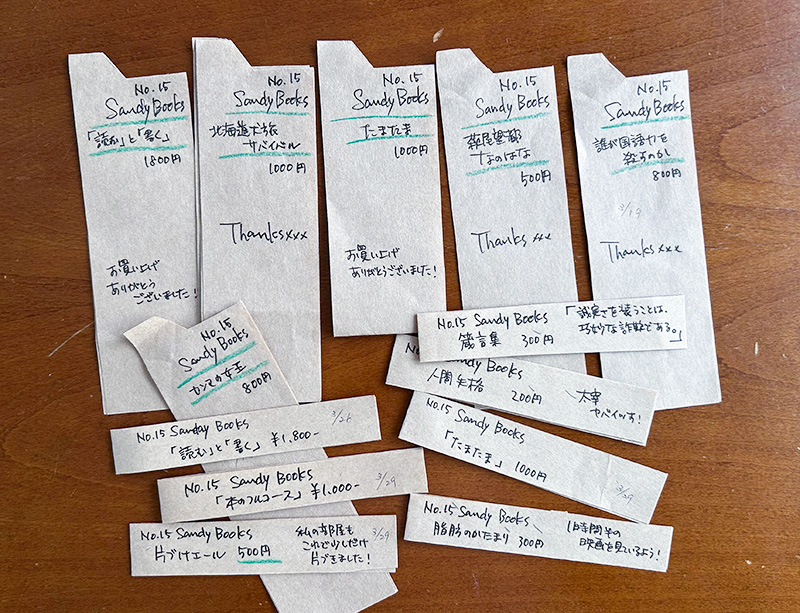 No.15
Sandy Books
「読む」と「書く」
1800円
お買い上げ
ありがとう
ございました!
No.15
Sandy Books
北海道犬旅
サバイバル
1000円
Thanks xxx
No.15
Sandy Books
たまたま
1000円
お買い上げ
ありがとうございました!
No.15
Sandy Books
森尾望都
なのはな
500円
Thanks xx
No.15
Sandy Books
誰が国語力を
殺すのか
800円
3/19
Thanks xxx
No.15
Sandy Books
カンマの女王
800円
No.15 Sandy Books 「誠実さを装うことは、
箴言集 300円 巧妙な詐欺である。」
No.15 Sandy Books
人間失格 200円 太宰
ヤバイッす!
No.15 Sanday Books
「読む」と「書く」 ¥1,800-
No.15 Sandy Books
「たまたま」 1000円
3/29
No.15 Sandy Books 3/29
「本のフルコース」 ¥1.000-
No.15 Sandy Books 私の部屋も 3/29
片づけエール 500円 これで少しだけ
片づきました!
No.15 Sandy Books 1時間半の
脂肪のかたまり 300円 映画を見ているよう!